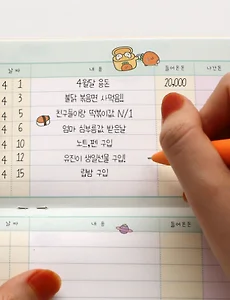 날짜 내용 들어온돈 나간돈
4 1 4월달 용돈 20,000
4 3 불닭 볶음면 사먹음!!
4 5 친구들이랑 떡볶이값 N/1
4 6 엄마 심부름값 받은날
4 10 노트,펜 구입
4 12 유진이 생일선물 구입!
4 15 립밤 구입
날짜 내용 들어온돈